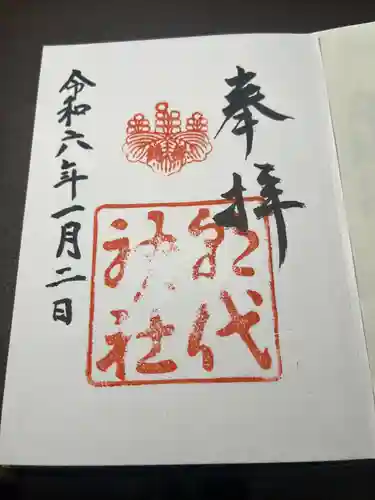 奉拝
朝代
神社
令和六年一月二日